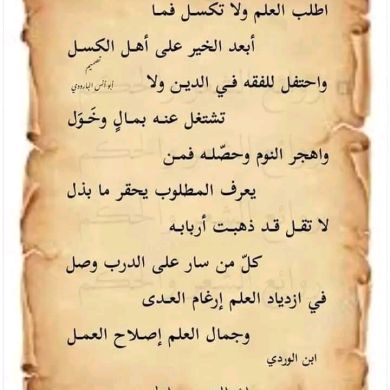 اطلب العلم ولا تكسل فما
أبعد الخير على أهل الكسل
تصميم
أبو أنس البارودي
واحتفل للفقه في الدين ولا
تشتغل عنه بمالٍ وخَوَل
واهجر النوم وحصّله فمن
يعرف المطلوب يحقر ما بذل
لا تقل قد ذهبت أربابه
كلّ من سار على الدرب وصل
في ازدياد العلم إرغام العدى
وجمال العلم إصلاح العمل
ابن الوردي